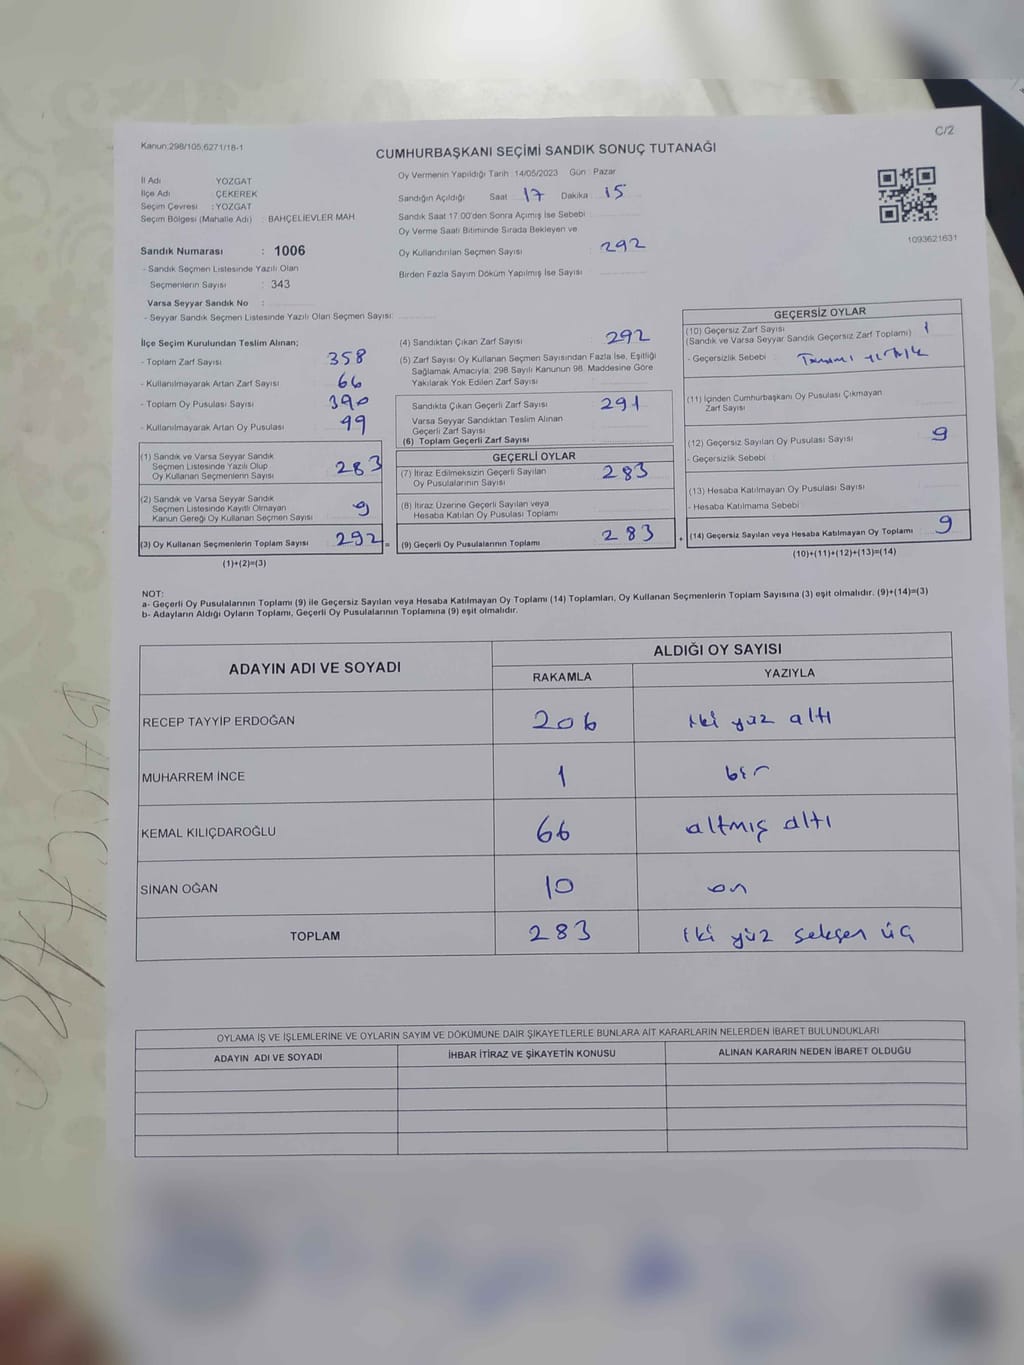 C/2
Kanun;298/105,6271/18-1
CUMHURBAŞKANI SEÇİMİ SANDIK SONUÇ TUTANAĞI
İl Adı YOZGAT
İlçe Adı ÇEKEREK
Seçim Çevresi : YOZGAT
Seçim Bölgesi (Mahalle Adı) : BAHÇELİEVLER MAH
Sandık Numarası : 1006
- Sandık Seçmen Listesinde Yazılı Olan
Seçmenlerin Sayısı : 343
Varsa Seyyar Sandık No :
- Seyyar Sandık Seçmen Listesinde Yazılı Olan Seçmen Sayısı:
Oy Vermenin Yapıldığı Tarih : 14/05/2023 Gün Pazar
Sandığın Açıldığı Saat 17 Dakika 15
Sandık Saat 17.00'den Sonra Açılmış İse Sebebi
Oy Verme Saati Bitiminde Sırada Bekleyen ve
Oy Kullandırılan Seçmen Sayısı : 292
Birden Fazla Sayım Döküm Yapılmış İse Sayısı
1093621631
İlçe Seçim Kurulundan Teslim Alınan;
- Toplam Zarf Sayısı 358
- Kullanılmayarak Artan Zarf Sayısı 66
- Toplam Oy Pusulası Sayısı 390
- Kullanılmayarak Artan Oy Pusulası 99
(1) Sandık ve Varsa Seyyar Sandık
Seçmen Listesinde Yazılı Olup
Oy Kullanan Seçmenlerin Sayısı 283
(2) Sandık ve Varsa Seyyar Sandık
Seçmen Listesinde Kayıtlı Olmayan
Kanun Gereği Oy Kullanan Seçmen Sayısı 9
(3) Oy Kullanan Seçmenlerin Toplam Sayısı 292 =
(1)+(2)=(3)
(4) Sandıktan Çıkan Zarf Sayısı : 292
(5) Zarf Sayısı Oy Kullanan Seçmen Sayısından Fazla İse, Eşitliği
Sağlamak Amacıyla; 298 Sayılı Kanunun 98. Maddesine Göre
Yakılarak Yok Edilen Zarf Sayısı
Sandıkta Çıkan Geçerli Zarf Sayısı 291
Varsa Seyyar Sandıktan Teslim Alınan
Geçerli Zarf Sayısı
(6) Toplam Geçerli Zarf Sayısı
GEÇERLİ OYLAR
(7) İtiraz Edilmeksizin Geçerli Sayılan
Oy Pusulalarının Sayısı 283
(8) İtiraz Üzerine Geçerli Sayılan veya
Hesaba Katılan Oy Pusulası Toplamı
(9) Geçerli Oy Pusulalarının Toplamı 283 +
GEÇERSİZ OYLAR
(10) Geçersiz Zarf Sayısı
(Sandık ve Varsa Seyyar Sandık Geçersiz Zarf Toplamı) 1
- Geçersizlik Sebebi : Tamamı yırtık
(11) İçinden Cumhurbaşkanı Oy Pusulası Çıkmayan
Zarf Sayısı
(12) Geçersiz Sayılan Oy Pusulası Sayısı 9
- Geçersizlik Sebebi
(13) Hesaba Katılmayan Oy Pusulası Sayısı
- Hesaba Katılmama Sebebi
(14) Geçersiz Sayılan veya Hesaba Katılmayan Oy Toplamı 9
(10)+(11)+(12)+(13)=(14)
NOT:
a- Geçerli Oy Pusulalarının Toplamı (9) ile Geçersiz Sayılan veya Hesaba Katılmayan Oy Toplamı (14) Toplamları, Oy Kullanan Seçmenlerin Toplam Sayısına (3) eşit olmalıdır. (9)+(14)=(3)
b- Adayların Aldığı Oyların Toplamı, Geçerli Oy Pusulalarının Toplamına (9) eşit olmalıdır.
ADAYIN ADI VE SOYADI
ALDIĞI OY SAYISI
RAKAMLA YAZIYLA
RECEP TAYYİP ERDOĞAN 206 iki yüz altı
MUHARREM İNCE 1 bir
KEMAL KILIÇDAROĞLU 66 altmış altı
SİNAN OĞAN 10 on
TOPLAM 283 iki yüz seksen üç
OYLAMA İŞ VE İŞLEMLERİNE VE OYLARIN SAYIM VE DÖKÜMÜNE DAİR ŞİKAYETLERLE BUNLARA AİT KARARLARIN NELERDEN İBARET BULUNDUKLARI
ADAYIN ADI VE SOYADI İHBAR İTİRAZ VE ŞİKAYETİN KONUSU ALINAN KARARIN NEDEN İBARET OLDUĞU